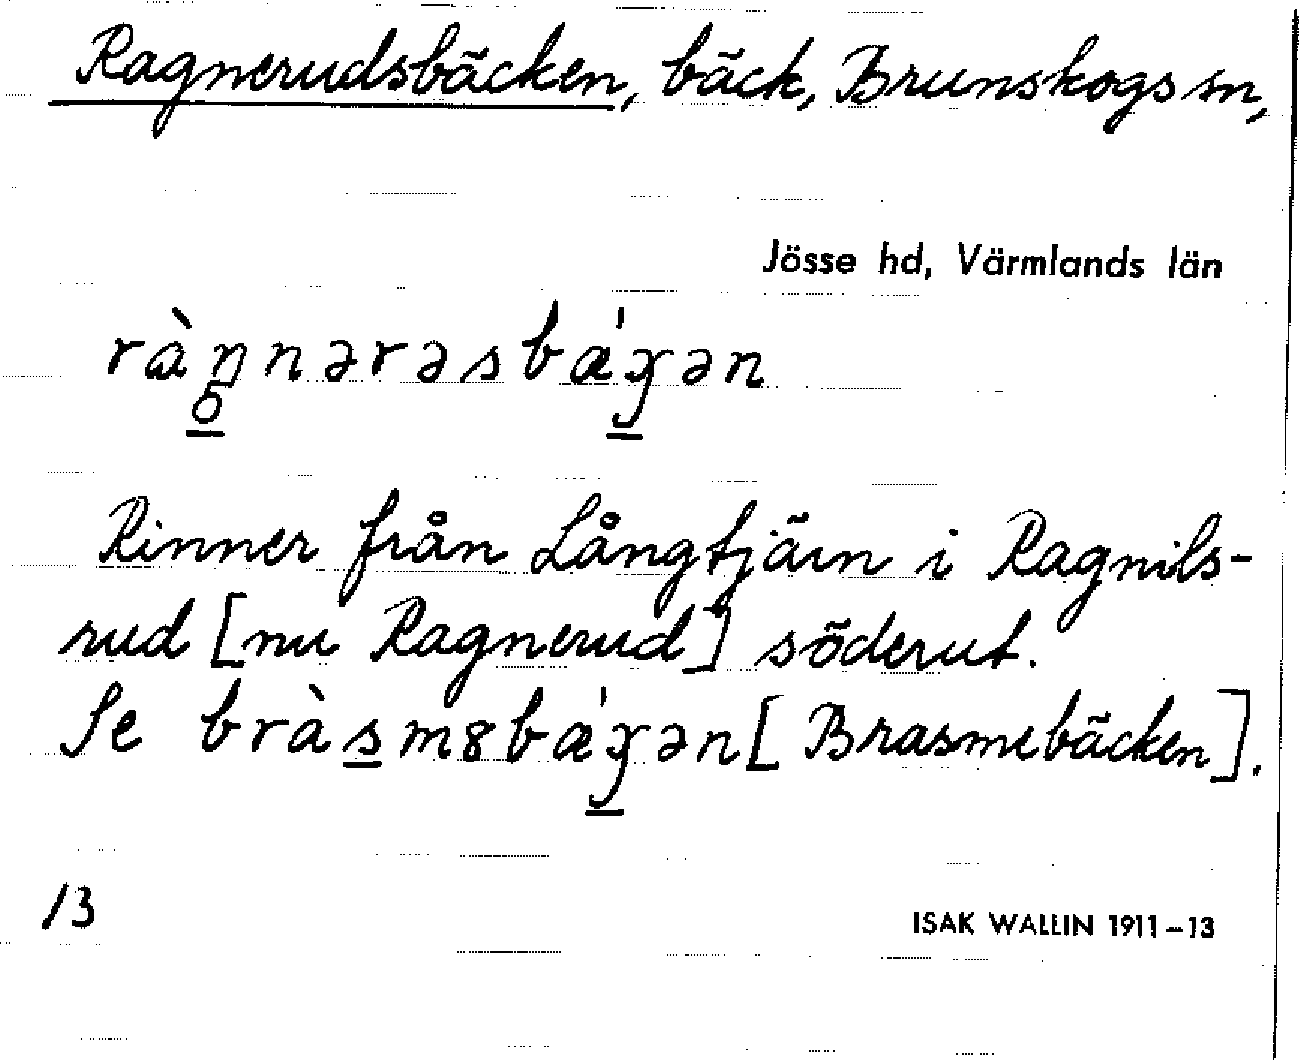 Ragnerudsbäcken, bäck, Brunskogs sn,
Jösse hd, Värmlands län
ràŋnərəsbǽɣən
Rinner från Långtjärn i Ragnils-
rud [nu Ragnerud] söderut.
Se bràsm8bǽɣən [Brasmebäcken].
/3
ISAK WALLIN 1911–13